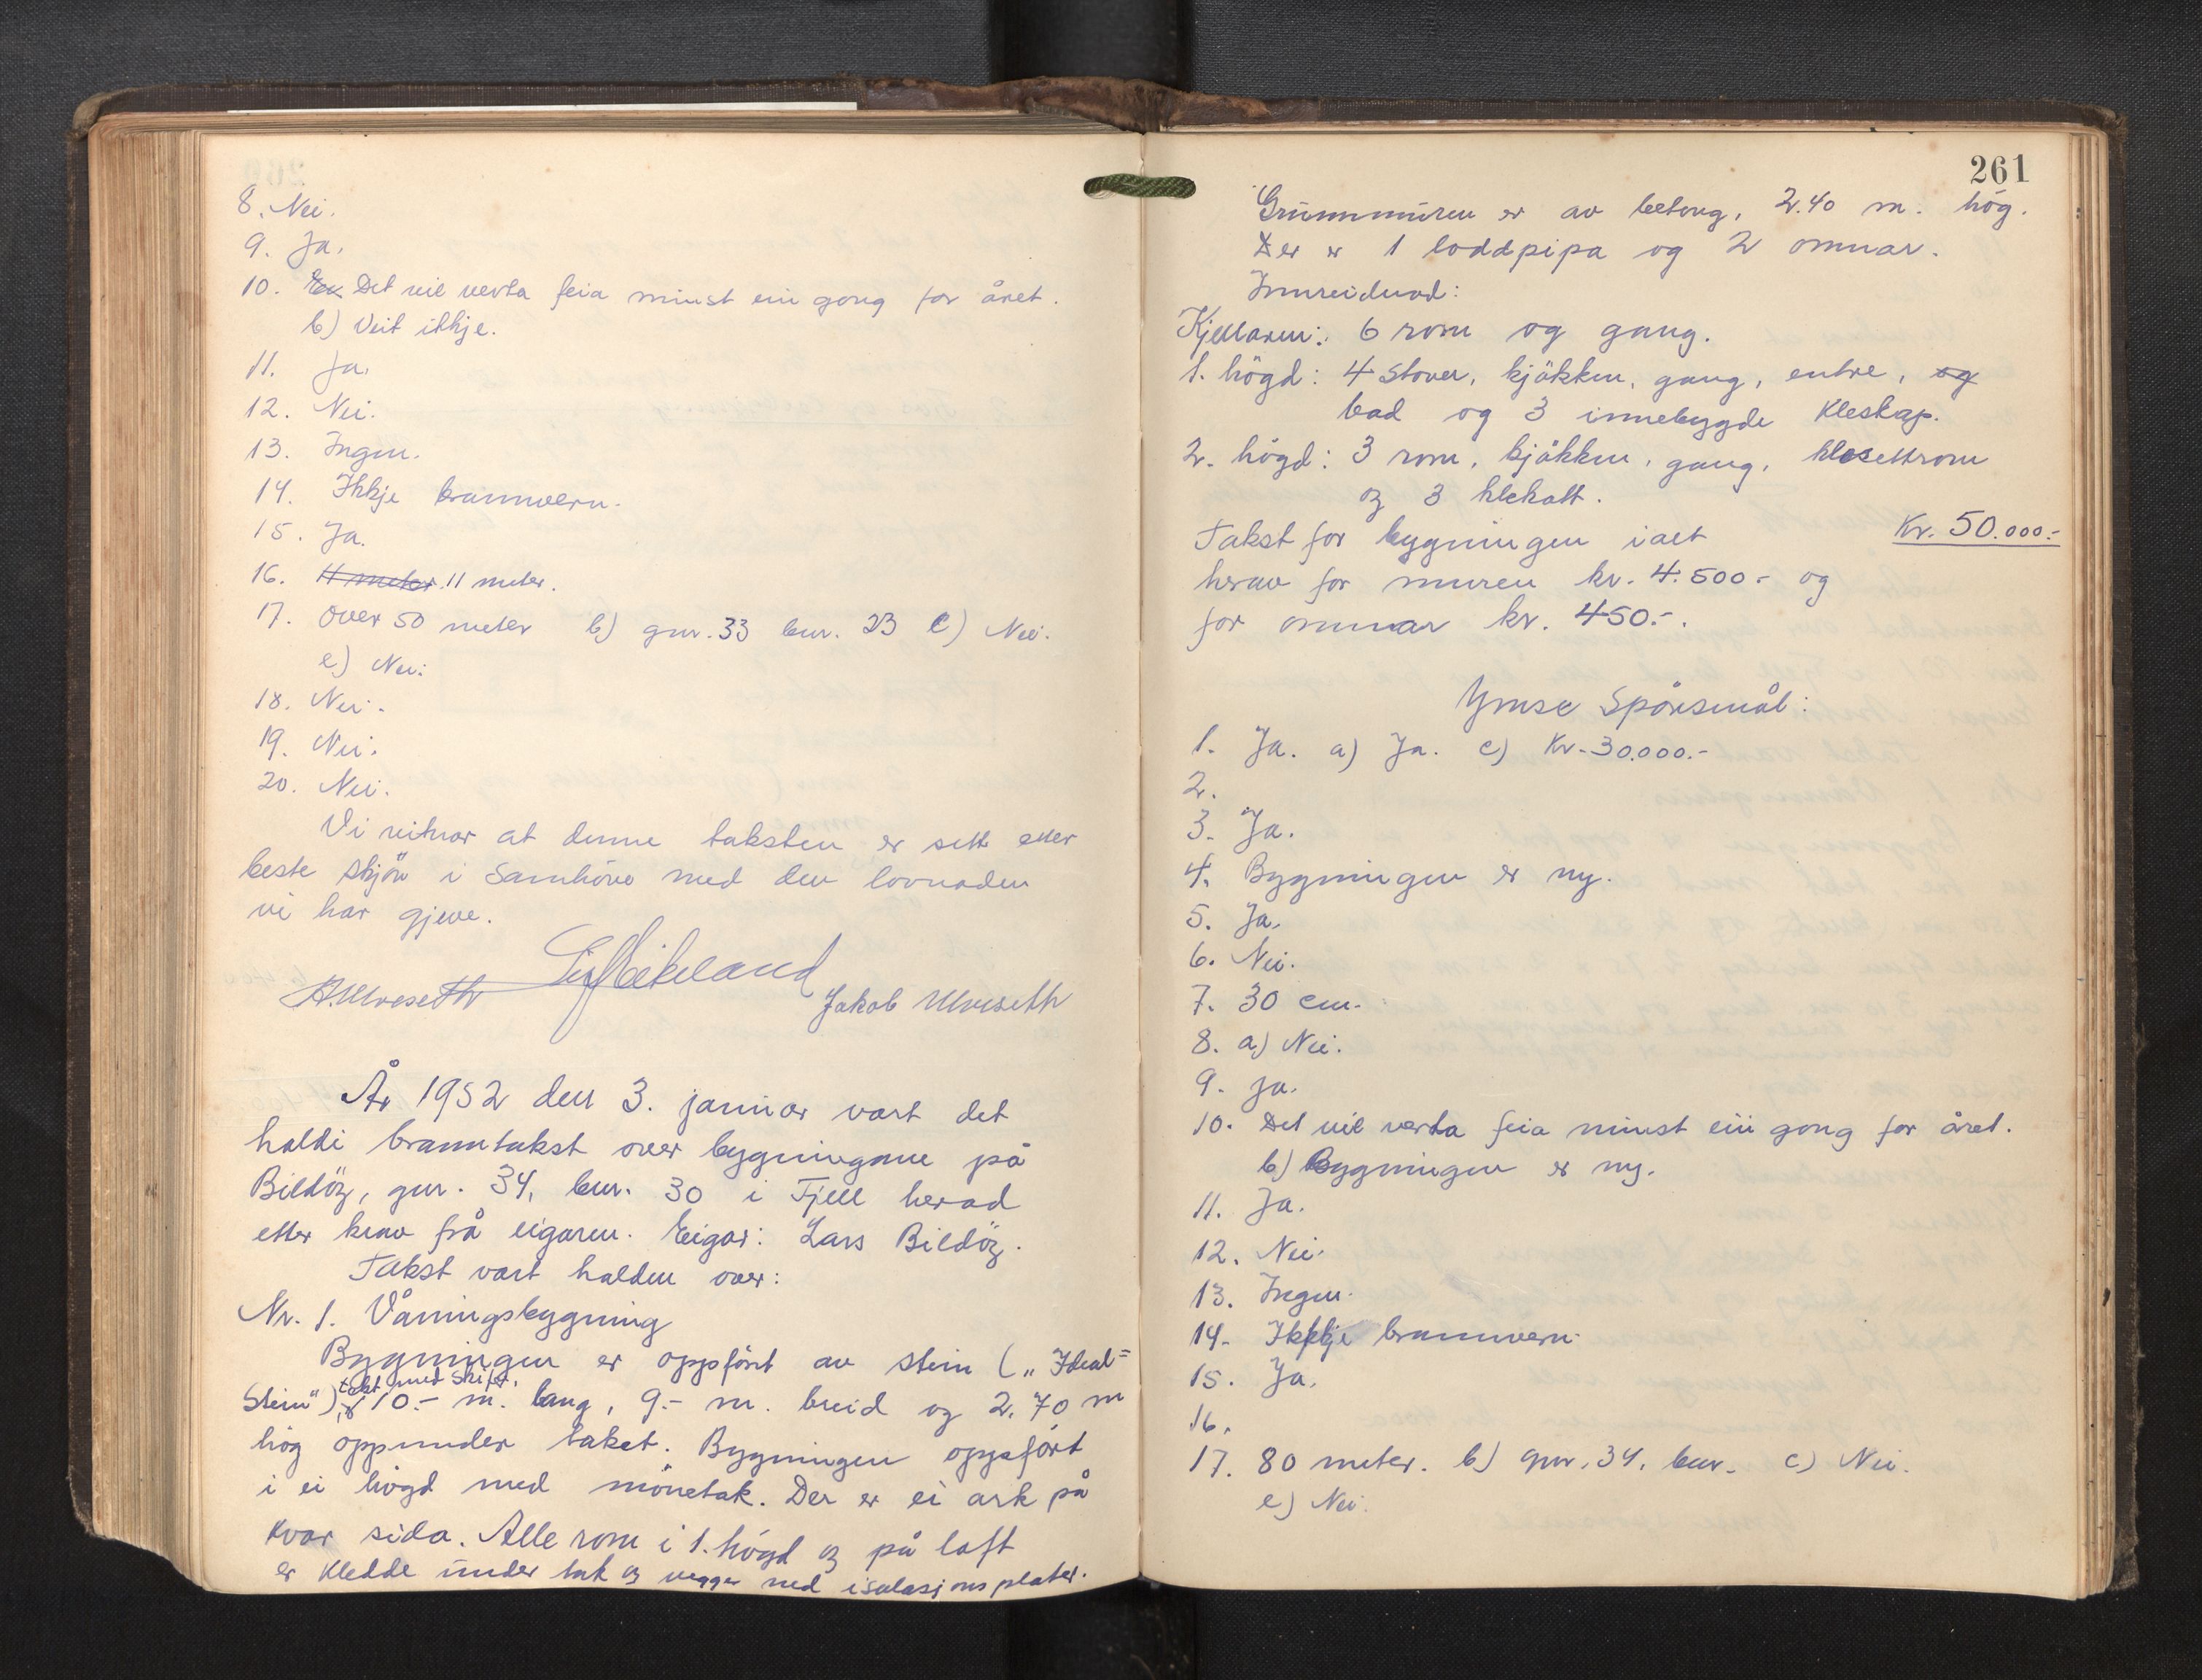 8. Nei.
9. Ja.
10. Det vil verta feia minst ein gong for året.
b) Veit ikkje.
11. Ja.
12. Nei.
13. Ingen.
14. Ikkje brannvern.
15. Ja.
16. 11 meter. 11 meter.
17. over 50 meter b) gnr. 33 bnr. 23 c) Nei.
e) Nei.
18. Nei.
19. Nei.
20. Nei.
Vi vitnar at denne taksten er sett etter
beste skjön i samhöve med den lovnaden
vi har gjeve.
Jakob Ulveseth
År 1952 den 3. januar vart det
haldi branntakst over bygningane på
Bildöy, gnr. 34, bnr. 30 i Fjell herad
etter krav frå eigaren. Eigar: Lars Bildöy.
Takst vart halden over:
Nr. 1. Våningsbygning
Bygningen er oppfört av stein („Ideal=
tekt med skifer,
Stein") 10.- m. lang, 9.- m. breid og 2.70 m
hög oppunder taket. Bygningen oppfört
i ei högd med mönetak. Der er ei ark på
kvar sida. Alle rom i 1. högd og på loft
er kledde under tak og vegger med isolasjonsplater.
261
Grunnmuren er av betong, 2.40 m. hög.
Der er 1 loddpipa og 2 omnar.
Innreidnad:
Kjellaren: 6 rom og gang.
1. högd: 4 stover, kjökken, gang, entre, og
bad og 3 innebygde kleskap.
2. högd: 3 rom, kjökken, gang, klosettrom
og 3 klekott.
Takst for bygningen ialt Kr. 50.000.-
herav for muren kr. 4.500.- og
for omnar kr. 450.-.
Ymse Spörsmål:
1. Ja. a) Ja. c) Kr. 30.000.-
2.
3. Ja.
4. Bygningen er ny.
5. Ja.
6. Nei.
7. 30 cm.
8. a) Nei.
9. Ja.
10. Det vil verta feia minst ein gong for året.
b) Bygningen er ny.
11. Ja.
12. Nei.
13. Ingen.
14. Ikkje brannvern.
15. Ja.
16.
17. 80 meter. b) gnr. 34, bnr. c) Nei.
e) Nei.